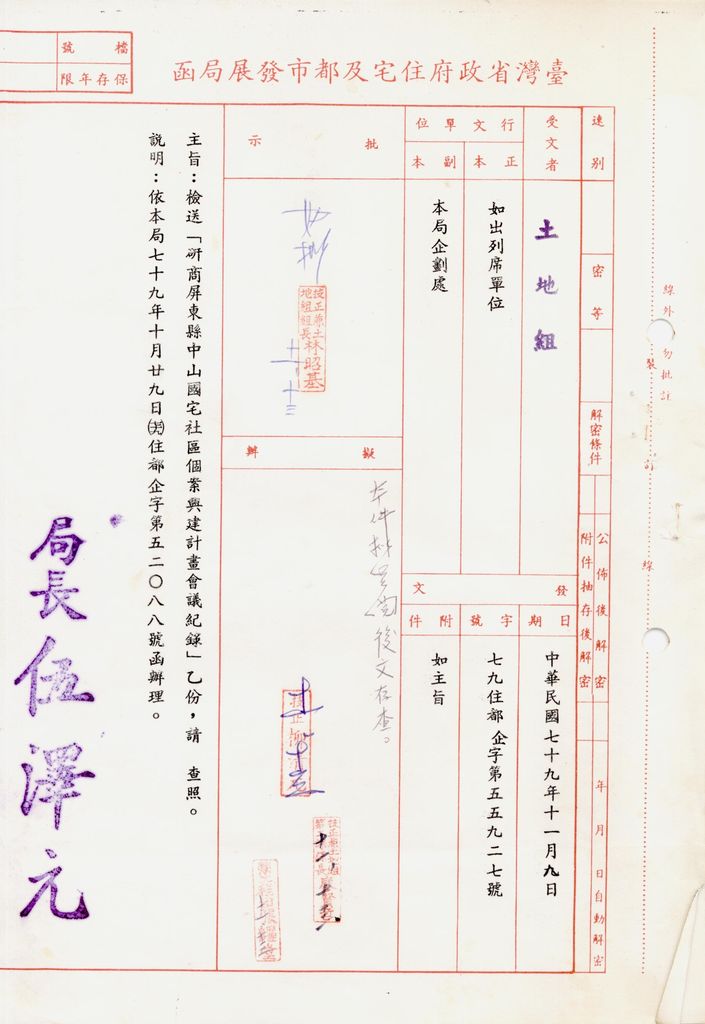 檔號
保存年限
臺灣省政府住宅及都市發展局函
速別
密等
解密條件
公佈後解密
附件抽存後解密
年月日自動解密
受文者
土地組
行文單位
正本
如出列席單位
副本
本局企劃處
發文
日期
中華民國七十九年十一月九日
字號
七九住都企字第五五九二七號
附件
如主旨
批示
技正兼土地組組長林昭基
擬辦
本件擬呈閱後文存查。
主旨：檢送「研商屏東縣中山國宅社區個案興建計畫會議紀錄」乙份，請　查照。
說明：依本局七十九年十月廿九日(79)住都企字第五二〇八八號函辦理。
局長伍澤元
裝訂線
線外勿批註